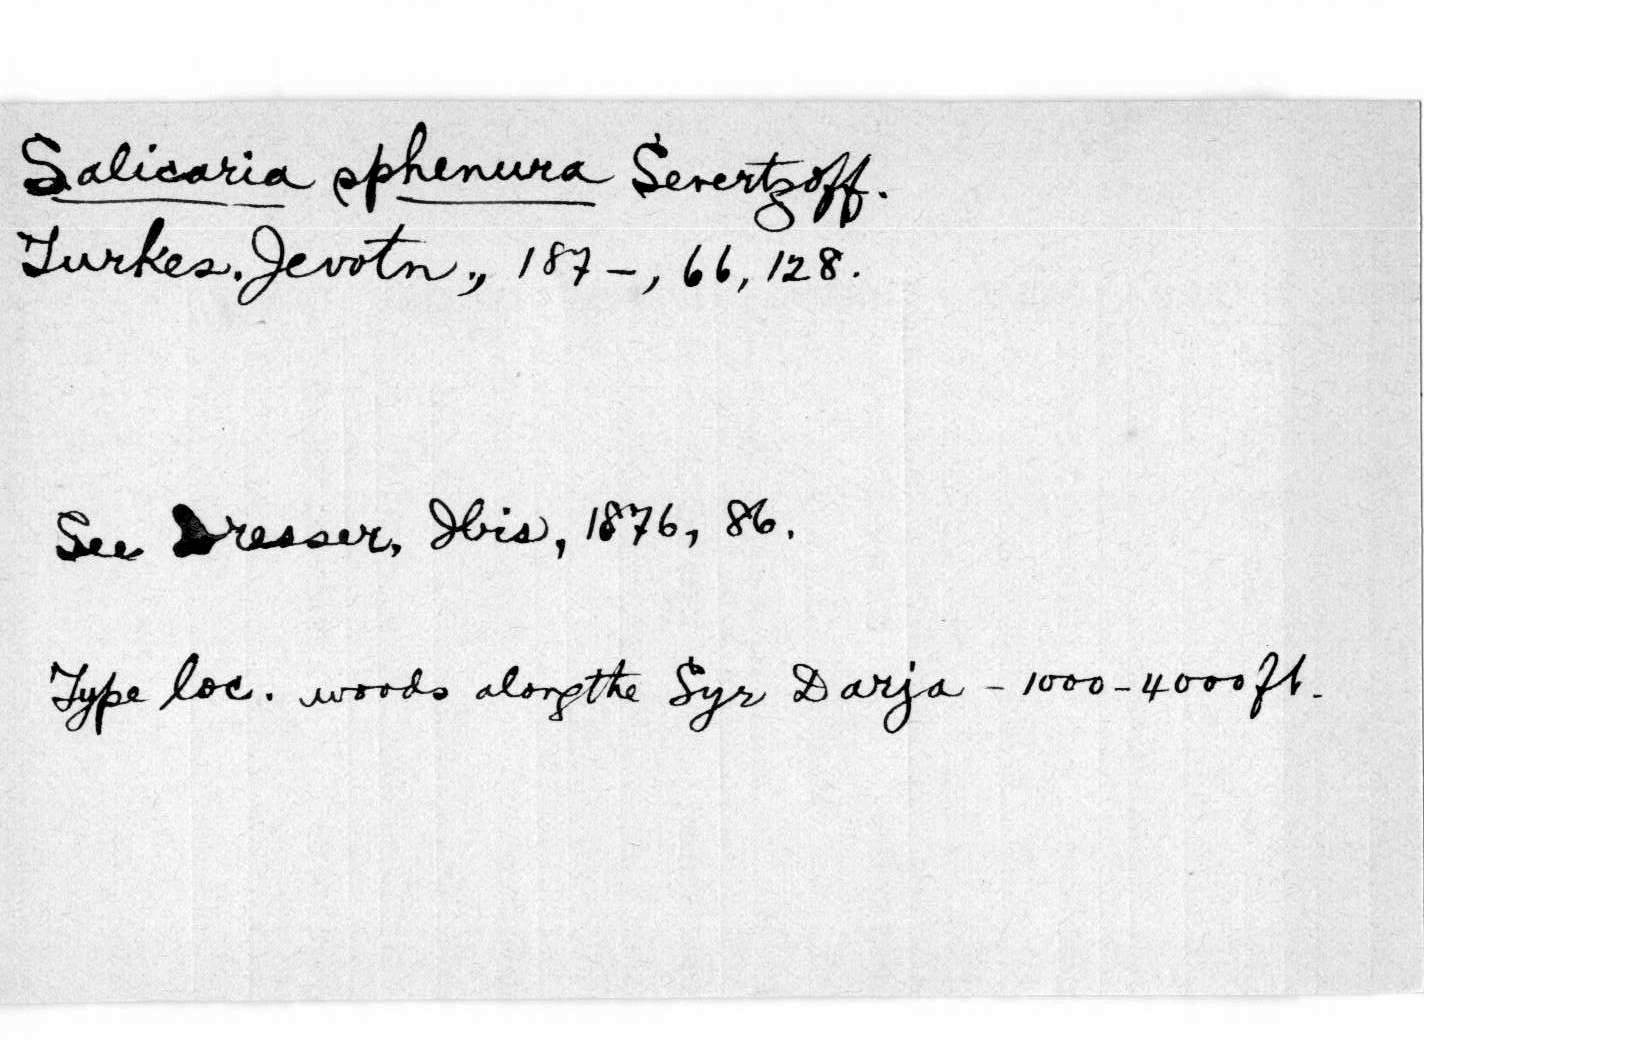 Salicaria sphenura Severtzoff.
Turkes. Jevotn., 187-, 66, 128.
See Dresser, Ibis, 1876, 86.
Type loc. woods along the Syr Darja - 1000-4000 ft.